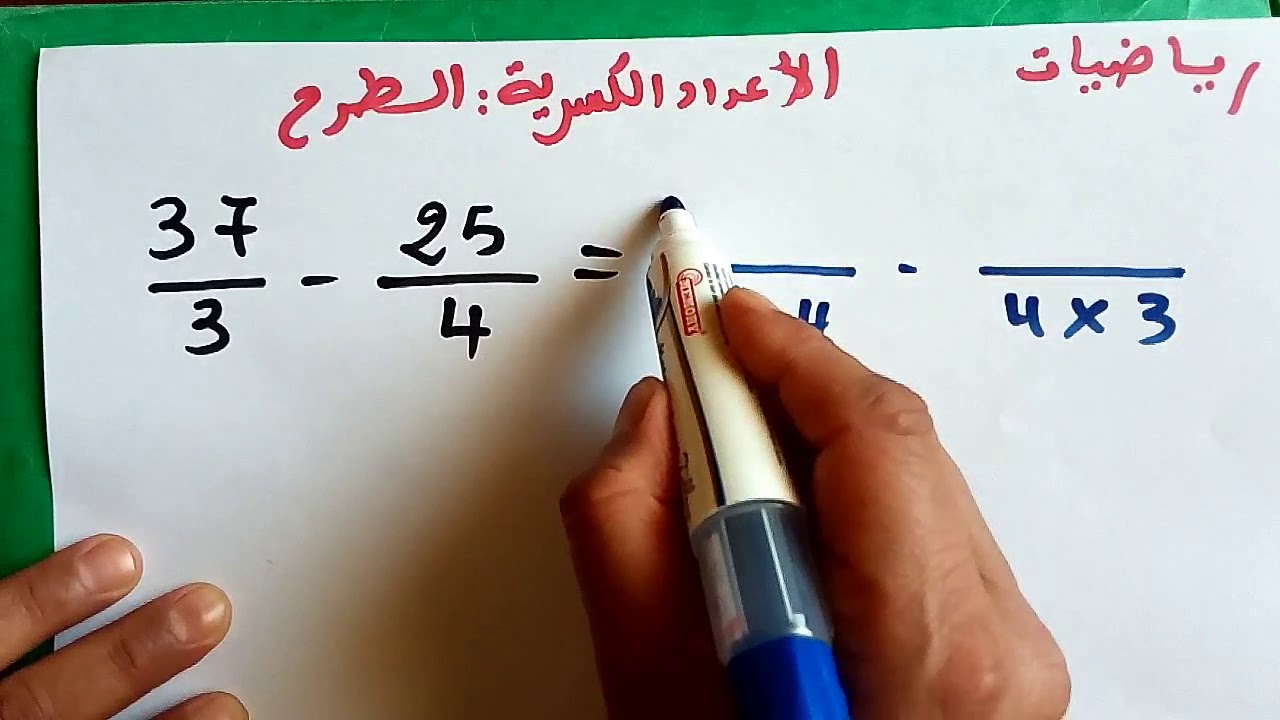 رياضيات
الأعداد الكسرية: الطرح
37 - 25 =
3 4 4 4 x 3